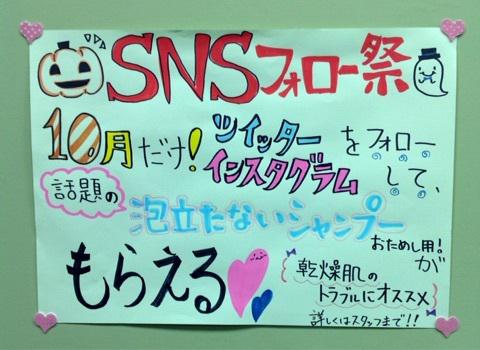 SNSフォロー祭
10月だけ!ツイッターインスタグラムをフォローして、
話題の
泡立たないシャンプー
おためし用!が
もらえる
乾燥肌の
トラブルにオススメ
詳しくはスタッフまで!!